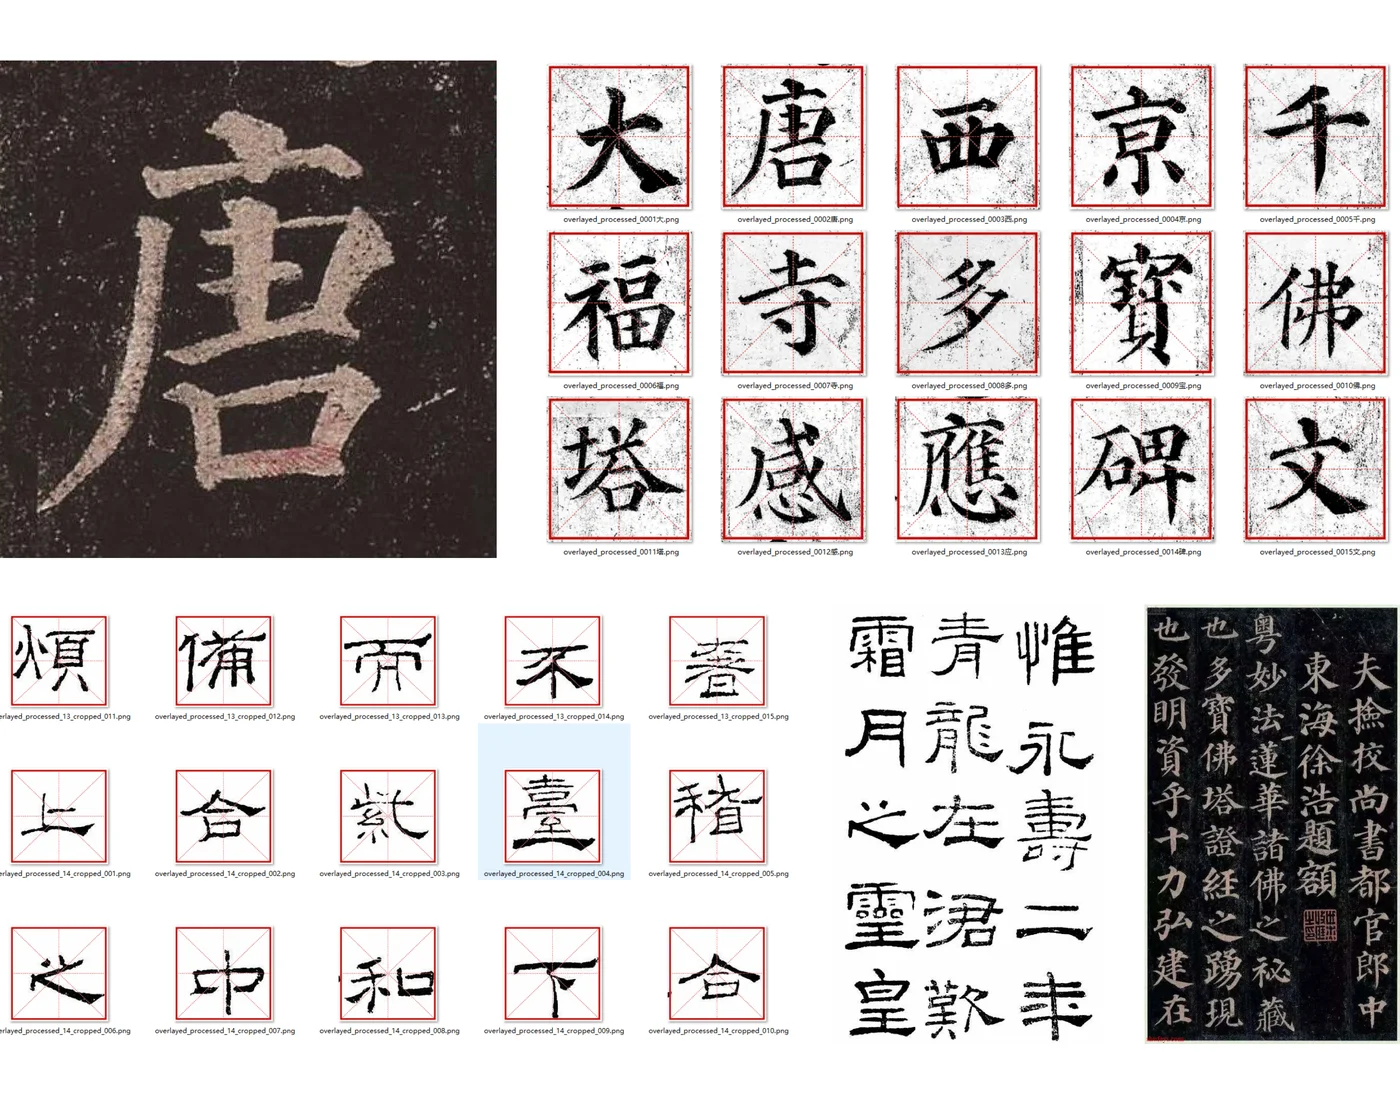 唐
大 唐 西 京 千
overlayed_processed_0001大.png overlayed_processed_0002唐.png overlayed_processed_0003西.png overlayed_processed_0004京.png overlayed_processed_0005千.png
福 寺 多 寶 佛
overlayed_processed_0006福.png overlayed_processed_0007寺.png overlayed_processed_0008多.png overlayed_processed_0009宝.png overlayed_processed_0010佛.png
塔 感 應 碑 文
overlayed_processed_0011塔.png overlayed_processed_0012感.png overlayed_processed_0013应.png overlayed_processed_0014碑.png overlayed_processed_0015文.png
煩 備 而 不
erlayed_processed_13_cropped_011.png overlayed_processed_13_cropped_012.png overlayed_processed_13_cropped_013.png overlayed_processed_13_cropped_014.png overlayed_processed_13_cropped_015.png
上 合 紫 臺 稽
erlayed_processed_14_cropped_001.png overlayed_processed_14_cropped_002.png overlayed_processed_14_cropped_003.png overlayed_processed_14_cropped_004.png overlayed_processed_14_cropped_005.png
之 中 和 下 合
erlayed_processed_14_cropped_006.png overlayed_processed_14_cropped_007.png overlayed_processed_14_cropped_008.png overlayed_processed_14_cropped_009.png overlayed_processed_14_cropped_010.png
惟永壽二年
青龍在涒歎
霜月之靈皇
夫撿校尚書都官郎中
東海徐浩題額
粵妙法蓮華諸佛之祕藏
也多寶佛塔證經之踴現
也發明資乎十力弘建在